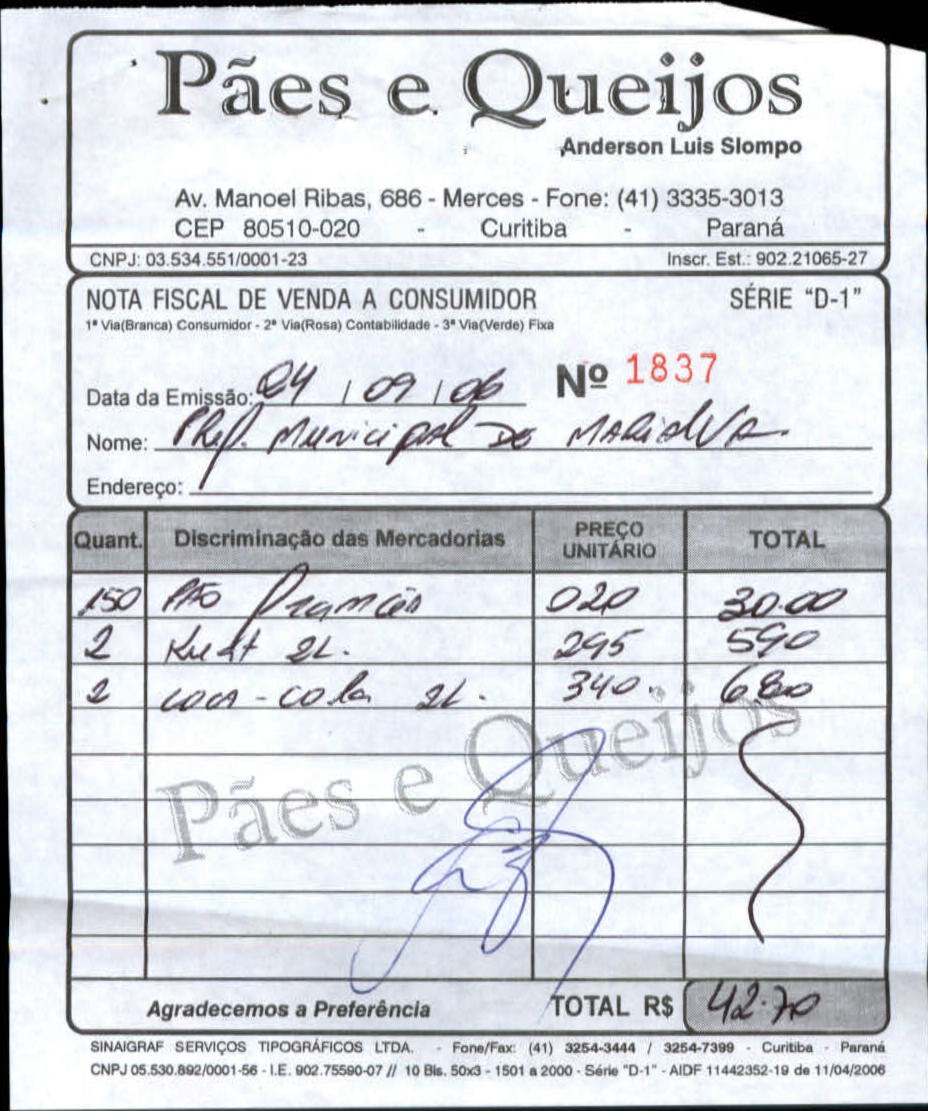 Pães e Queijos
Anderson Luis Slompo
Av. Manoel Ribas, 686 - Merces - Fone: (41) 3335-3013
CEP 80510-020 - Curitiba - Paraná
CNPJ: 03.534.551/0001-23 Inscr. Est.: 902.21065-27
NOTA FISCAL DE VENDA A CONSUMIDOR SÉRIE "D-1"
1ª Via(Branca) Consumidor - 2ª Via(Rosa) Contabilidade - 3ª Via(Verde) Fixa
Data da Emissão: 04 / 09 / 06 Nº 1837
Nome: Pref. Municipal de
Endereço:
Quant. Discriminação das Mercadorias PREÇO UNITÁRIO TOTAL
150 Pão Francês 020 30.00
2 2L. 295 590
2 coca-cola 2L. 340. 6.80
Pães e Queijos
Agradecemos a Preferência TOTAL R$ 42.70
SINAIGRAF SERVIÇOS TIPOGRÁFICOS LTDA. - Fone/Fax: (41) 3254-3444 / 3254-7399 - Curitiba - Paraná
CNPJ 05.530.892/0001-56 - I.E. 902.75590-07 // 10 Bls. 50x3 - 1501 a 2000 - Série "D-1" - AIDF 11442352-19 de 11/04/2006